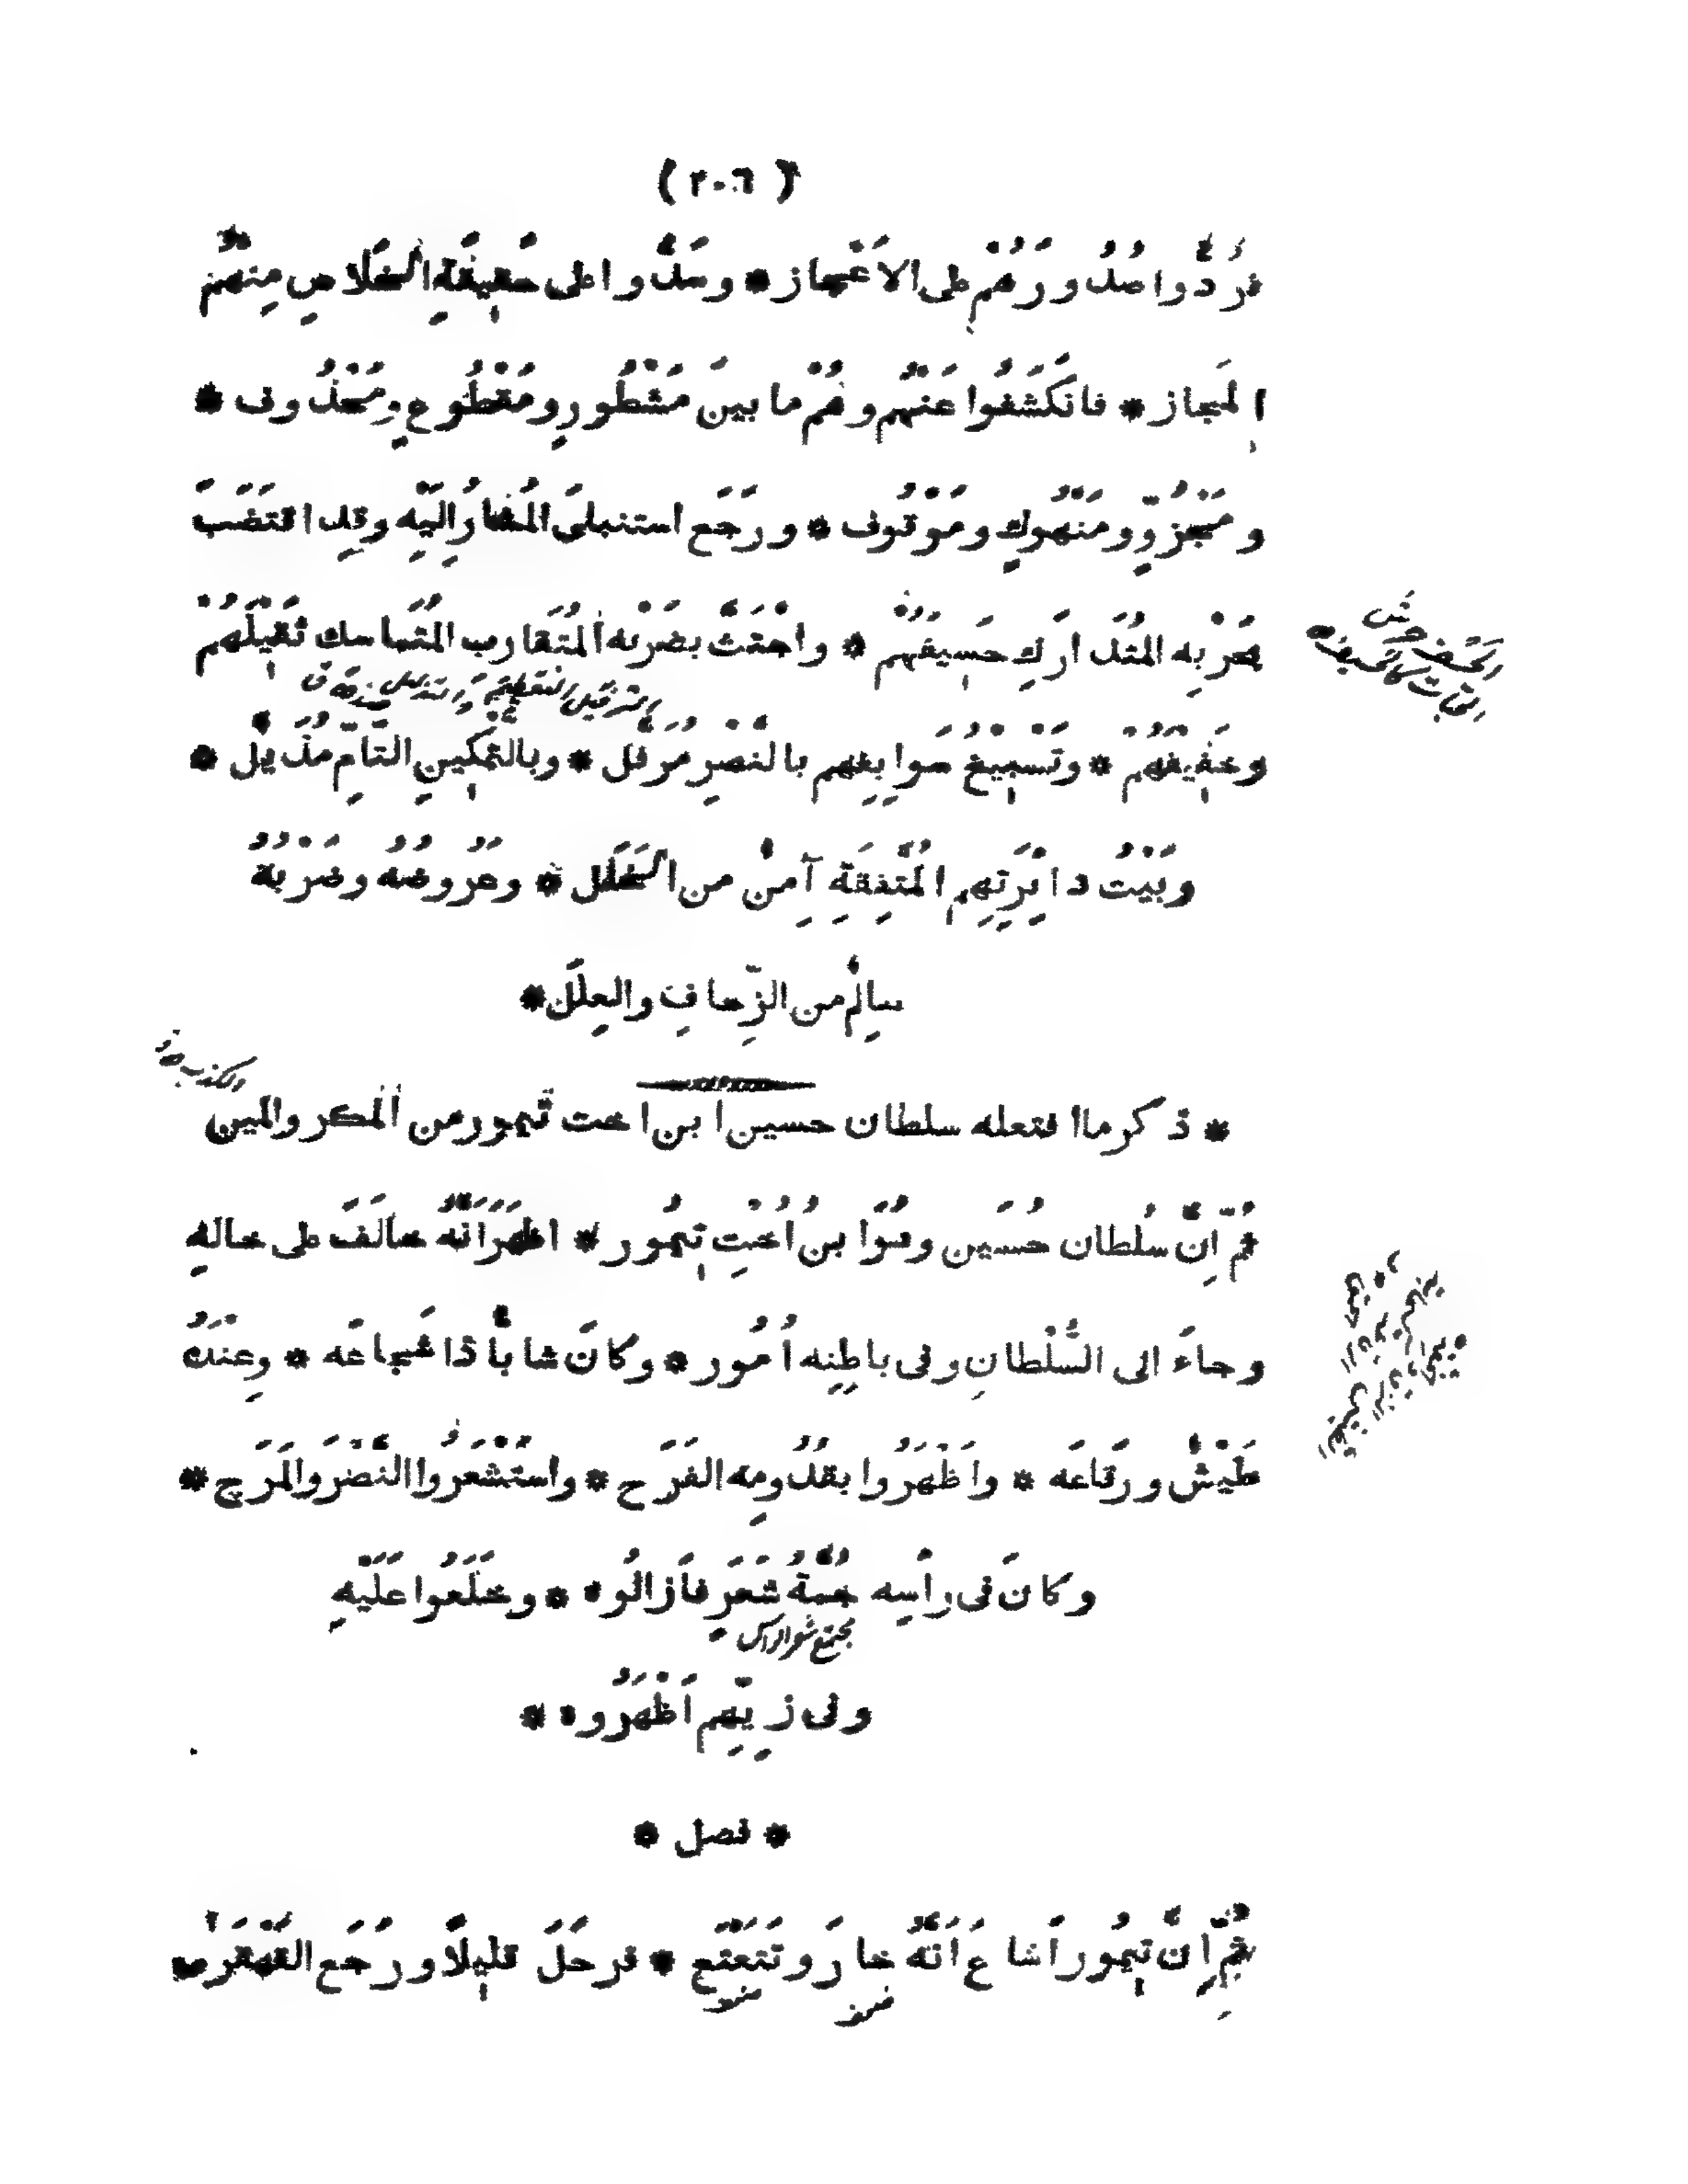 ( ٢٠٦ )
فرُدُّوا صُدُورَهُمْ على الاَعْجاز * وسَدُّوا على حَقِيقَةِ الخَلاصِ مِنهُمُ
المَجاز * فانكَشَفُوا عَنْهُم وهُمْ ما بينَ مَشْطُورٍ ومَقْطُوعٍ ومَحْذُوف *
ومَجْزُوٍّ ومَنْهُوكٍ ومَوْقُوف * ورَجَع استنبلى المُشارُ اِلَيْهِ وقدِ اقتَضَبَ
بحَرْبِه المُتَدارَكِ حَسِيفَهُمْ * واحْتَثَّ بضَرْبه المُتَقارب المُتَماسك ثَقِيلَهُمْ
وخَفِيفَهُمْ * وتَسْبِيغُ سَوابِغِهِم بالنَّصْرِ مُرَفَّل * وبالتَّمْكِينِ التّامِّ مُذَيَّل *
وبَيْتُ دائِرَتِهِم المُتَّفِقَةِ آمِنٌ من الخَلَل * وعَرُوضُهُ وضَرْبُهُ
سالِمٌ من الزِّحافِ والعِلَل *
الكذب
* ذكر ما افتعله سلطان حسين ابن اخت تيمور من المكر والمين
ثُمَّ اِنَّ سُلطان حُسَين وهُوَ ابنُ اُخْتِ تِيمُور * اظهَرَ اَنَّهُ خالَفَ على خالِهِ
وجاءَ الى السُّلْطانِ وفى باطِنِه اُمُور * وكانَ شابًّا ذا شَجاعَه * وعِنْدَهُ
طَيْشٌ ورَقاعَه * واَظْهَرُوا بقُدُومِه الفَرَح * واسْتَشْعَرُوا النَّصْرَ والمَرَح *
وكانَ فى رأسِه جُمَّةُ شَعَرٍ فاَزالُوه * وخَلَعُوا عَلَيْهِ
مجتمع شعر الراس
وفى زِيِّهِم اَظْهَرُوه *
* فصل *
ثُمَّ اِنَّ تِيمُور اَشاعَ اَنَّهُ خارَ وتَتَعْتَع * فرحَلَ قلِيلًا ورَجَع القَهْقَرى